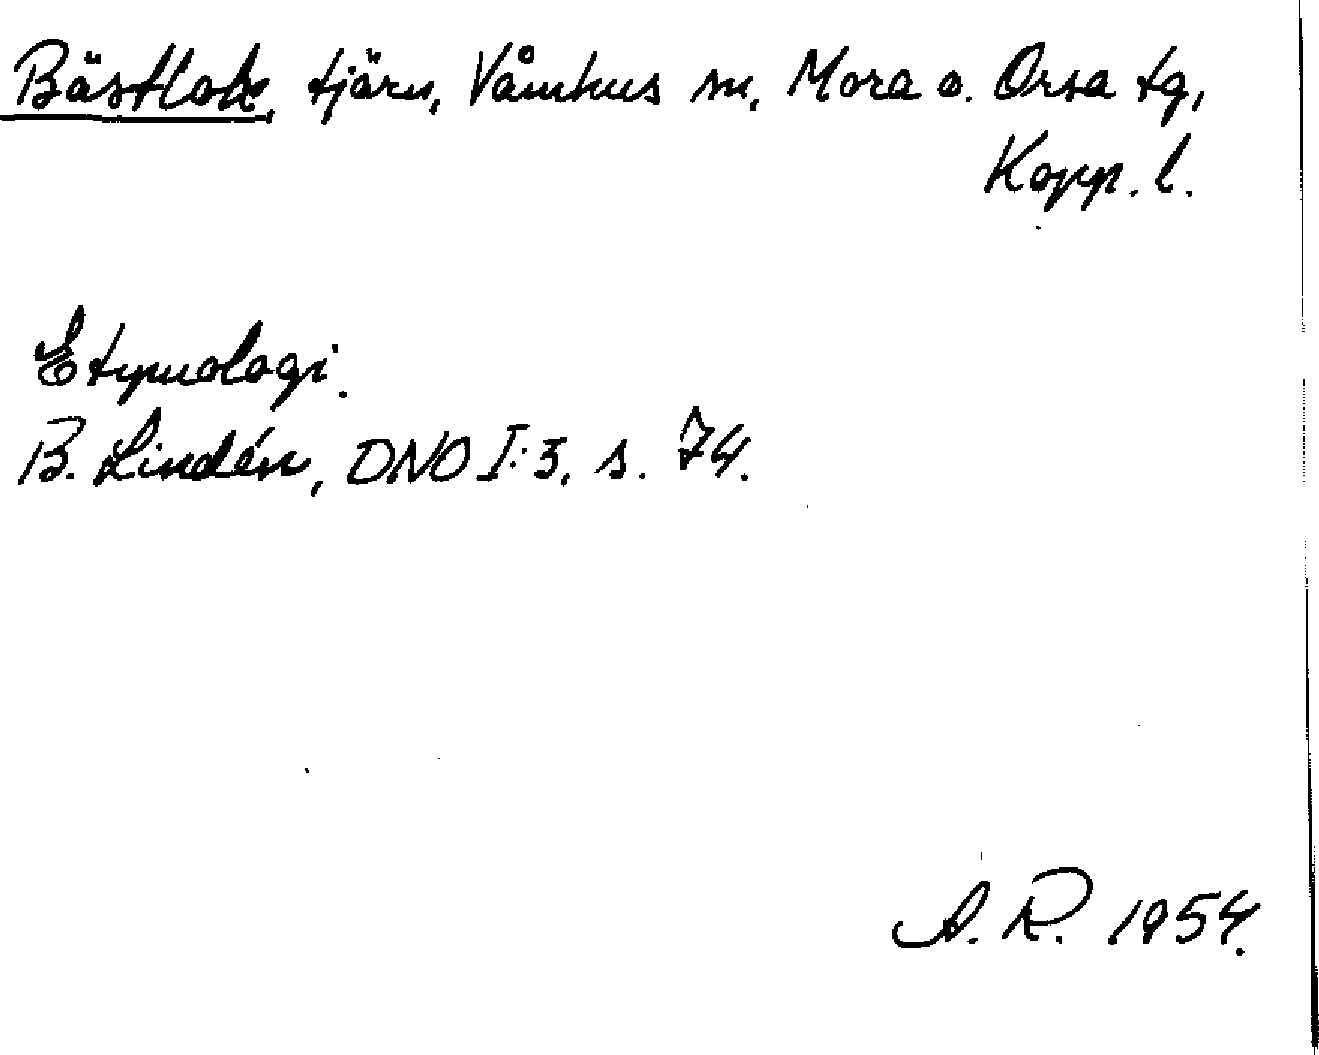 Bästlok, tjärn, Våmhus sn, Mora o. Orsa tg,
Kopp. l.
Etymologi.
B. Lindén, DNO I:3, s. 74.
A. R. 1954.